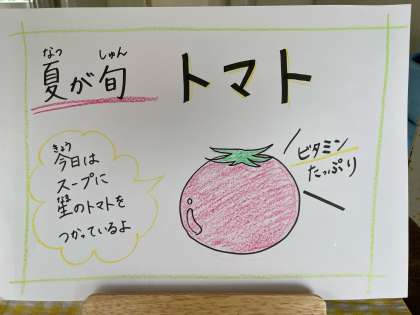 なつ しゅん
夏が旬 トマト
ビタミン
たっぷり
きょう
今日は
スープに
生のトマトを
つかっているよ